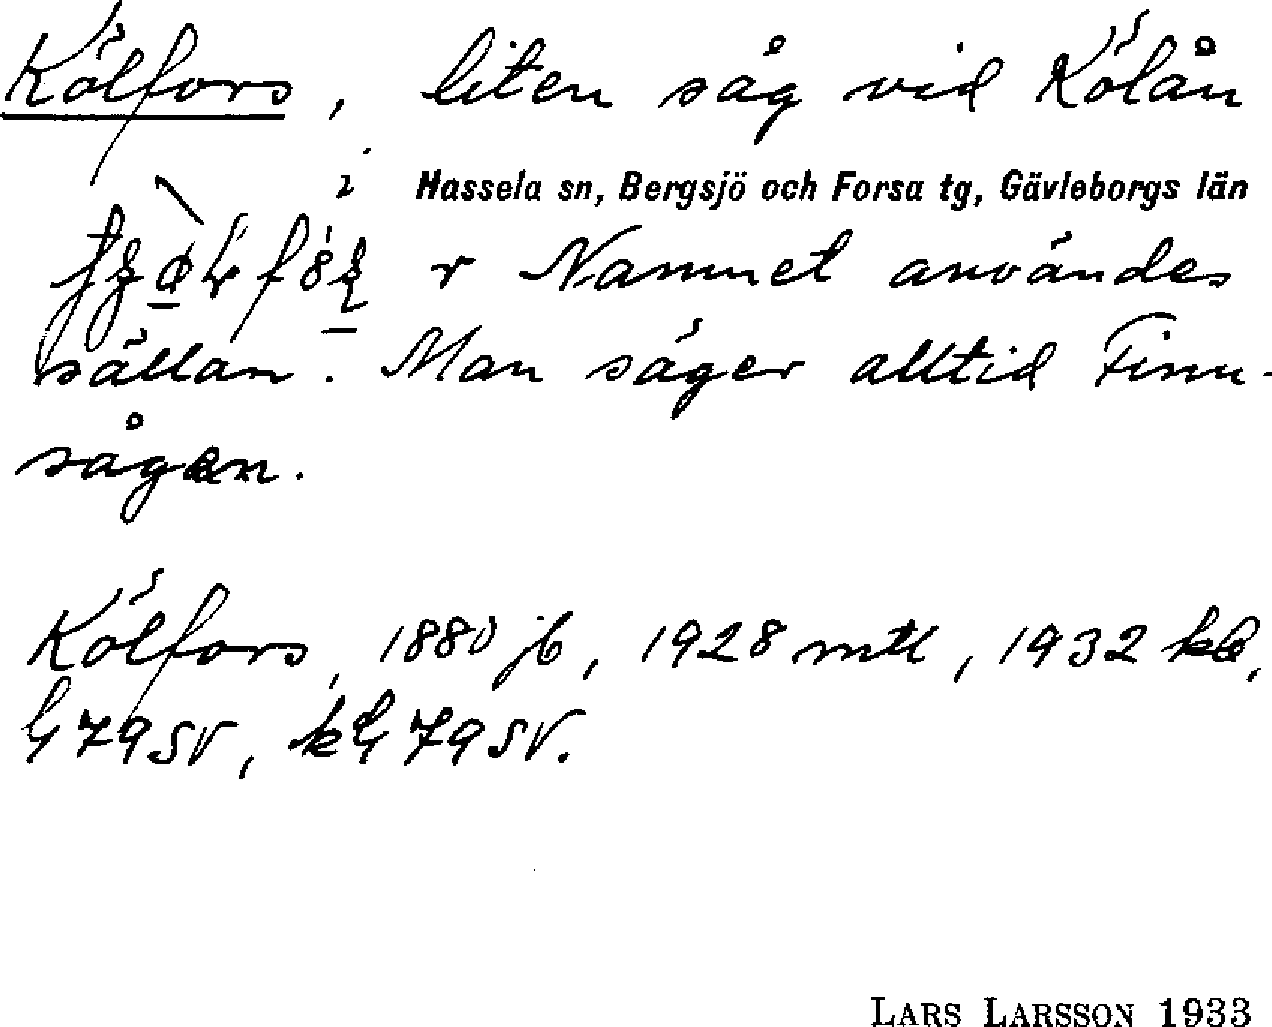 Kölfors, liten såg vid Kölån
i Hassela sn, Bergsjö och Forsa tg, Gävleborgs län
r Namnet användes
sällan. Man säger alltid Finn-
sågen.
Kölfors, 1880 jb, 1928 mtl, 1932 kb,
G 79 SV, kG 79 SV.
LARS LARSSON 1933